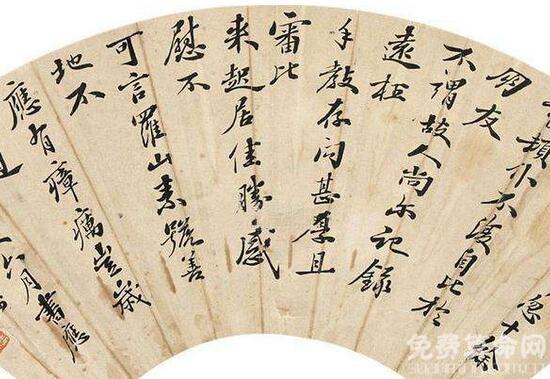 頑介不復自比於
朋友
不謂故人尚尔記錄
遠枉
手教存问甚厚且
審比
来起居佳勝感
慰不
可言羅山素號善
地不
應有瘴癘豈歲
六月書應
免费算命网